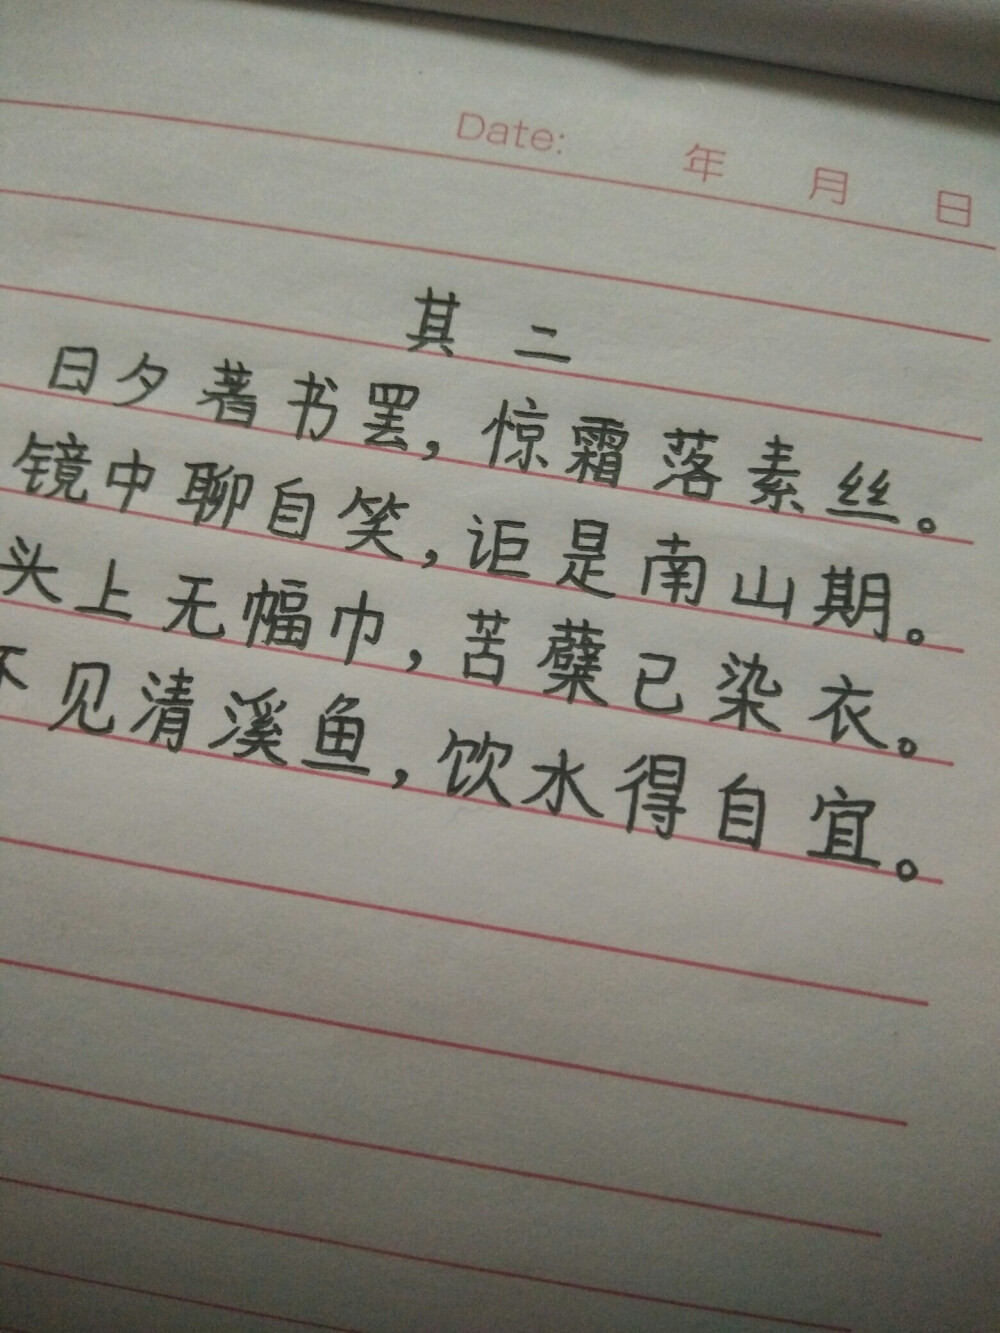 Date: 年 月 日
其二
日夕著书罢，惊霜落素丝。
镜中聊自笑，讵是南山期。
头上无幅巾，苦蘖已染衣。
不见清溪鱼，饮水得自宜。